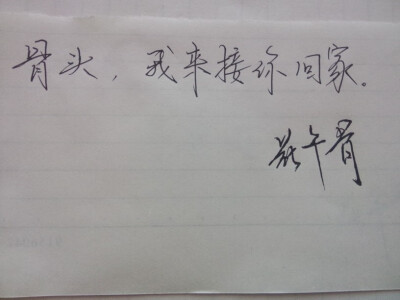 骨头，我来接你回家。
花千骨